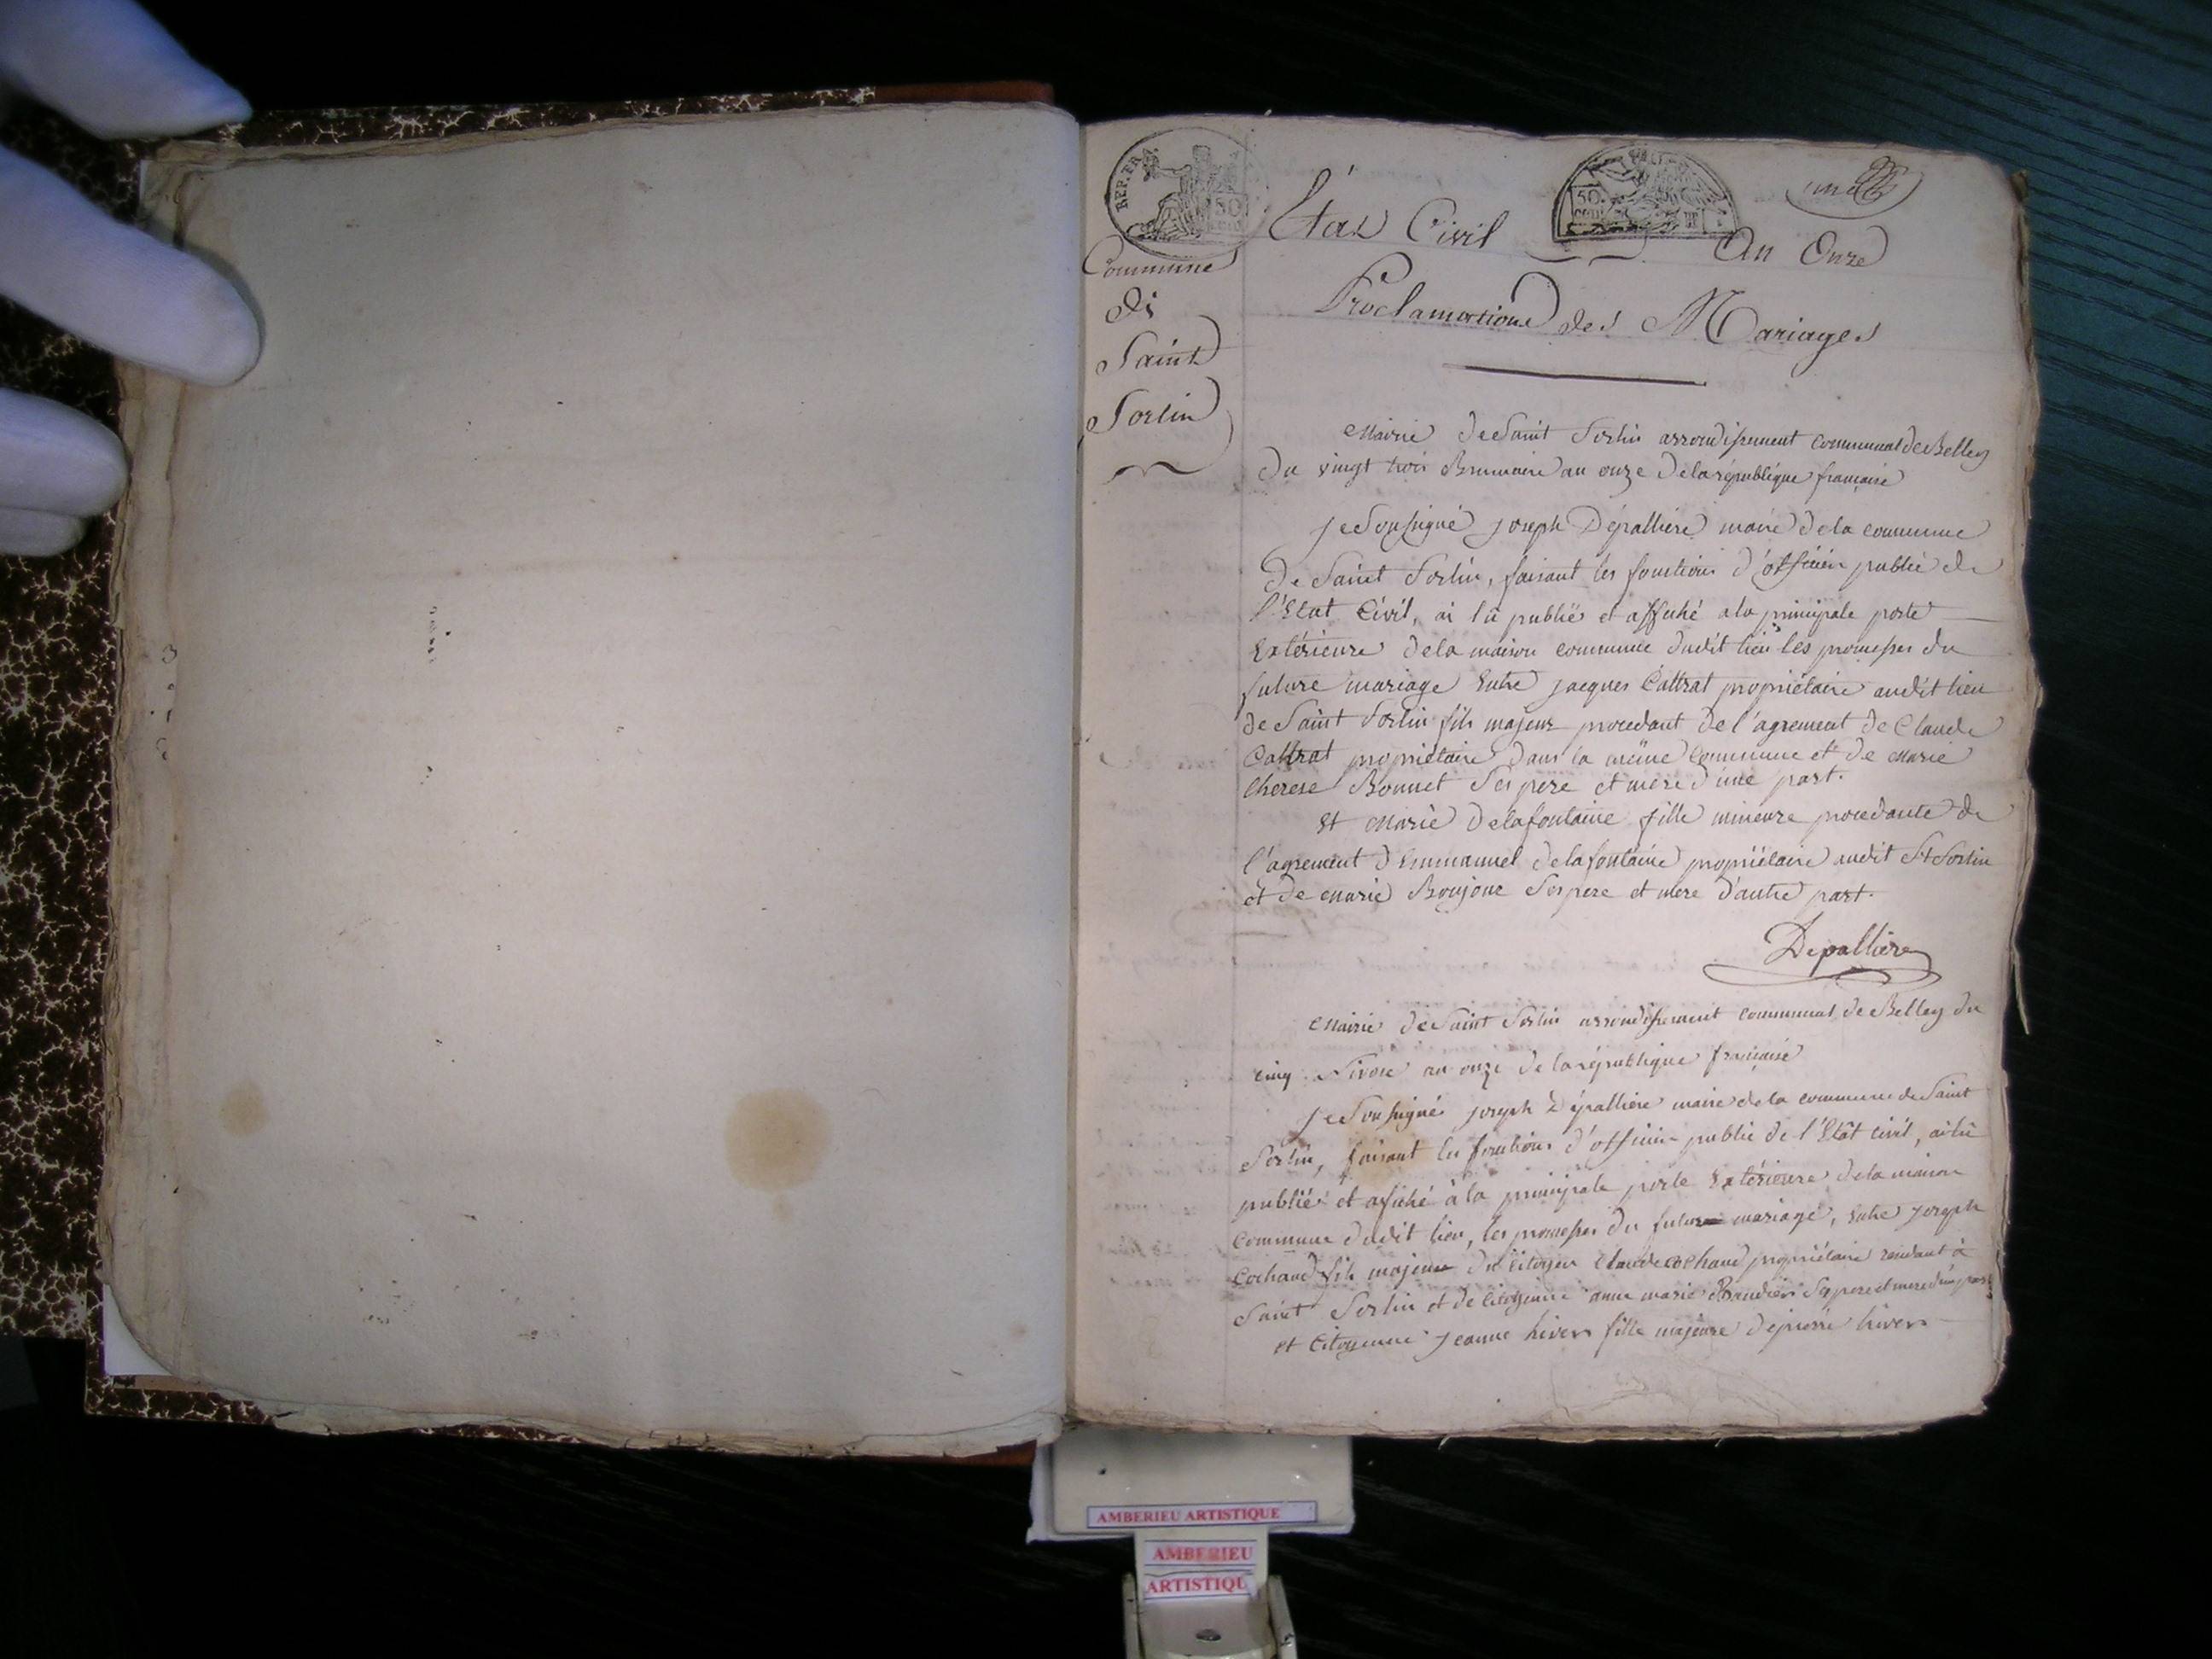 REP. FRA
50
50
CEN
une
Commune
de
Saint
Sorlin
État Civil An Onze
Proclamations des Mariages
Mairie de Saint Sorlin arrondissement communal de Belley
Du vingt trois Brumaire an onze de la république française
je Soussigné joseph Dépallière maire de la commune
de Saint Sorlin, faisant les fonctions d'officier public de
l'Etat Civil, ai lû publié et affiché a la principale porte
Extérieure de la maison commune dudit lieu les promesses du
future mariage Entre jacques Cattrat propriétaire audit lieu
de Saint Sorlin fils majeur procedant de l'agrement de Claude
Cattrat propriétaire dans la même Commune et de Marie
therese Bonnet Ses pere et mere d'une part.
Et Marie Delafontaine fille mineure procedante de
l'agrement d'Emmanuel delafontaine propriétaire audit St Sorlin
et de Marie Boujone Ses pere et mere d'autre part.
Depallière
Mairie de Saint Sorlin arrondissement communal de Belley du
cinq Nivose an onze de la république française
je Soussigné joseph Dépallière maire de la commune de Saint
Sorlin, faisant les fonctions d'officier public de l'Etât civil, ai lû
publié et afiché à la principale porte Extérieure de la maison
Commune dudit lieu, les promesses du future mariage, entre joseph
Cochaud fils majeur du Citoyen Claude Cochaud propriétaire rendant à
Saint Sorlin et de Citoyenne anne marie Baudier Ses pere et mere d'une part
et Citoyenne jeanne hivers fille majeure de pierre hivers
AMBERIEU ARTISTIQUE
AMBERIEU
ARTISTIQU